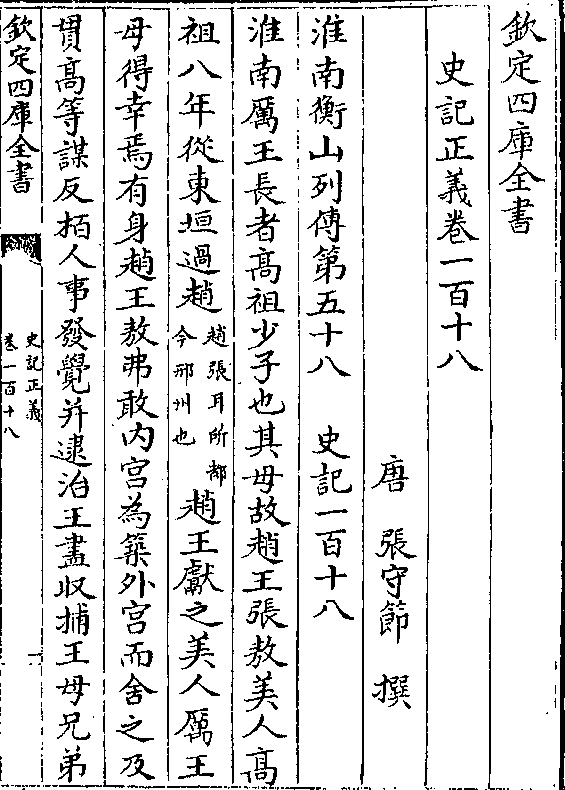 欽定四庫全書
史記正義卷一百十八
唐　張守節　撰
淮南衡山列傳第五十八　史記一百十八
淮南厲王長者髙祖少子也其母故趙王張敖美人髙
祖八年從東垣過趙趙張耳所都今邢州也趙王獻之美人厲王
母得幸焉有身趙王敖弗敢内宫為築外宫而舍之及
貫髙等謀反栢人事發覺并逮治王盡収捕王母兄弟
欽定四庫全書
史記正義
卷一百十八
一